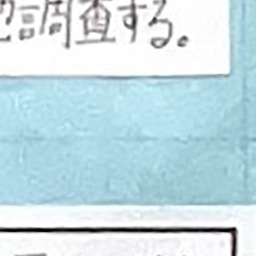 調査する。